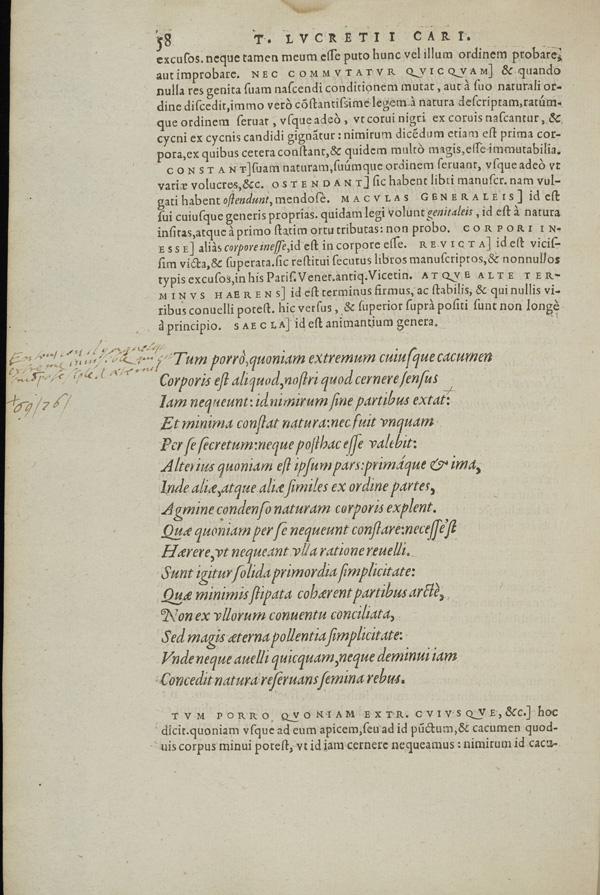 58 T. LVCRETII CARI.
excusos. neque tamen meum esse puto hunc vel illum ordinem probare,
aut improbare. NEC COMMVTATVR QVICQVAM] & quando
nulla res genita suam nascendi conditionem mutat, aut à suo naturali or-
dine discedit, immo verò cõstantissime legem à natura descriptam, ratúm-
que ordinem seruat, vsque adeò, vt corui nigri ex coruis nascantur, &
cycni ex cycnis candidi gignãtur: nimirum dicẽdum etiam est prima cor-
pora, ex quibus cetera constant, & quidem multò magis, esse immutabilia.
CONSTANT] suam naturam, suúmque ordinem seruant, vsque adeò vt
variæ volucres, &c. OSTENDANT] sic habent libti manuscr. nam vul-
gati habent ostendunt, mendosè. MACVLAS GENERALEIS] id est
sui cuiusque generis proprias. quidam legi volunt genitaleis, id est à natura
insitas, atque à primo statim ortu tributas: non probo. CORPORI IN-
ESSE] aliàs corpore inesse, id est in corpore esse. REVICTA] id est vicis-
sim victa, & superata. sic restitui secutus libros manuscriptos, & nonnullos
typis excusos, in his Paris. Venet. antiq. Vicetin. ATQVE ALTE TER-
MINVS HAERENS] id est terminus firmus, ac stabilis, & qui nullis vi-
ribus conuelli potest. hic versus, & superior suprà positi sunt non longè
à principio. SAECLA] id est animantium genera.
Tum porrò, quoniam extremum cuiusque cacumen
Corporis est aliquod, nostri quod cernere sensus
Iam nequeunt: id nimirum sine partibus extat:
Et minima constat natura: nec fuit vnquam
Per se secretum: neque posthac esse valebit:
Alterius quoniam est ipsum pars: primáque & ima,
Inde aliæ, atque aliæ similes ex ordine partes,
Agmine condenso naturam corporis explent.
Quæ quoniam per se nequeunt constare: necesse'st
Hærere, vt nequeant vlla ratione reuelli.
Sunt igitur solida primordia simplicitate:
Quæ minimis stipata cohærent partibus arctè,
Non ex vllorum conuentu conciliata,
Sed magis æterna pollentia simplicitate:
Vnde neque auelli quicquam, neque deminui iam
Concedit natura reseruans semina rebus.
TVM PORRO QVONIAM EXTR. CVIVSQVE, &c.] hoc
dicit. quoniam vsque ad eum apicem, seu ad id pũctum, & cacumen quod-
uis corpus minui potest, vt id iam cernere nequeamus: nimirum id cacu-